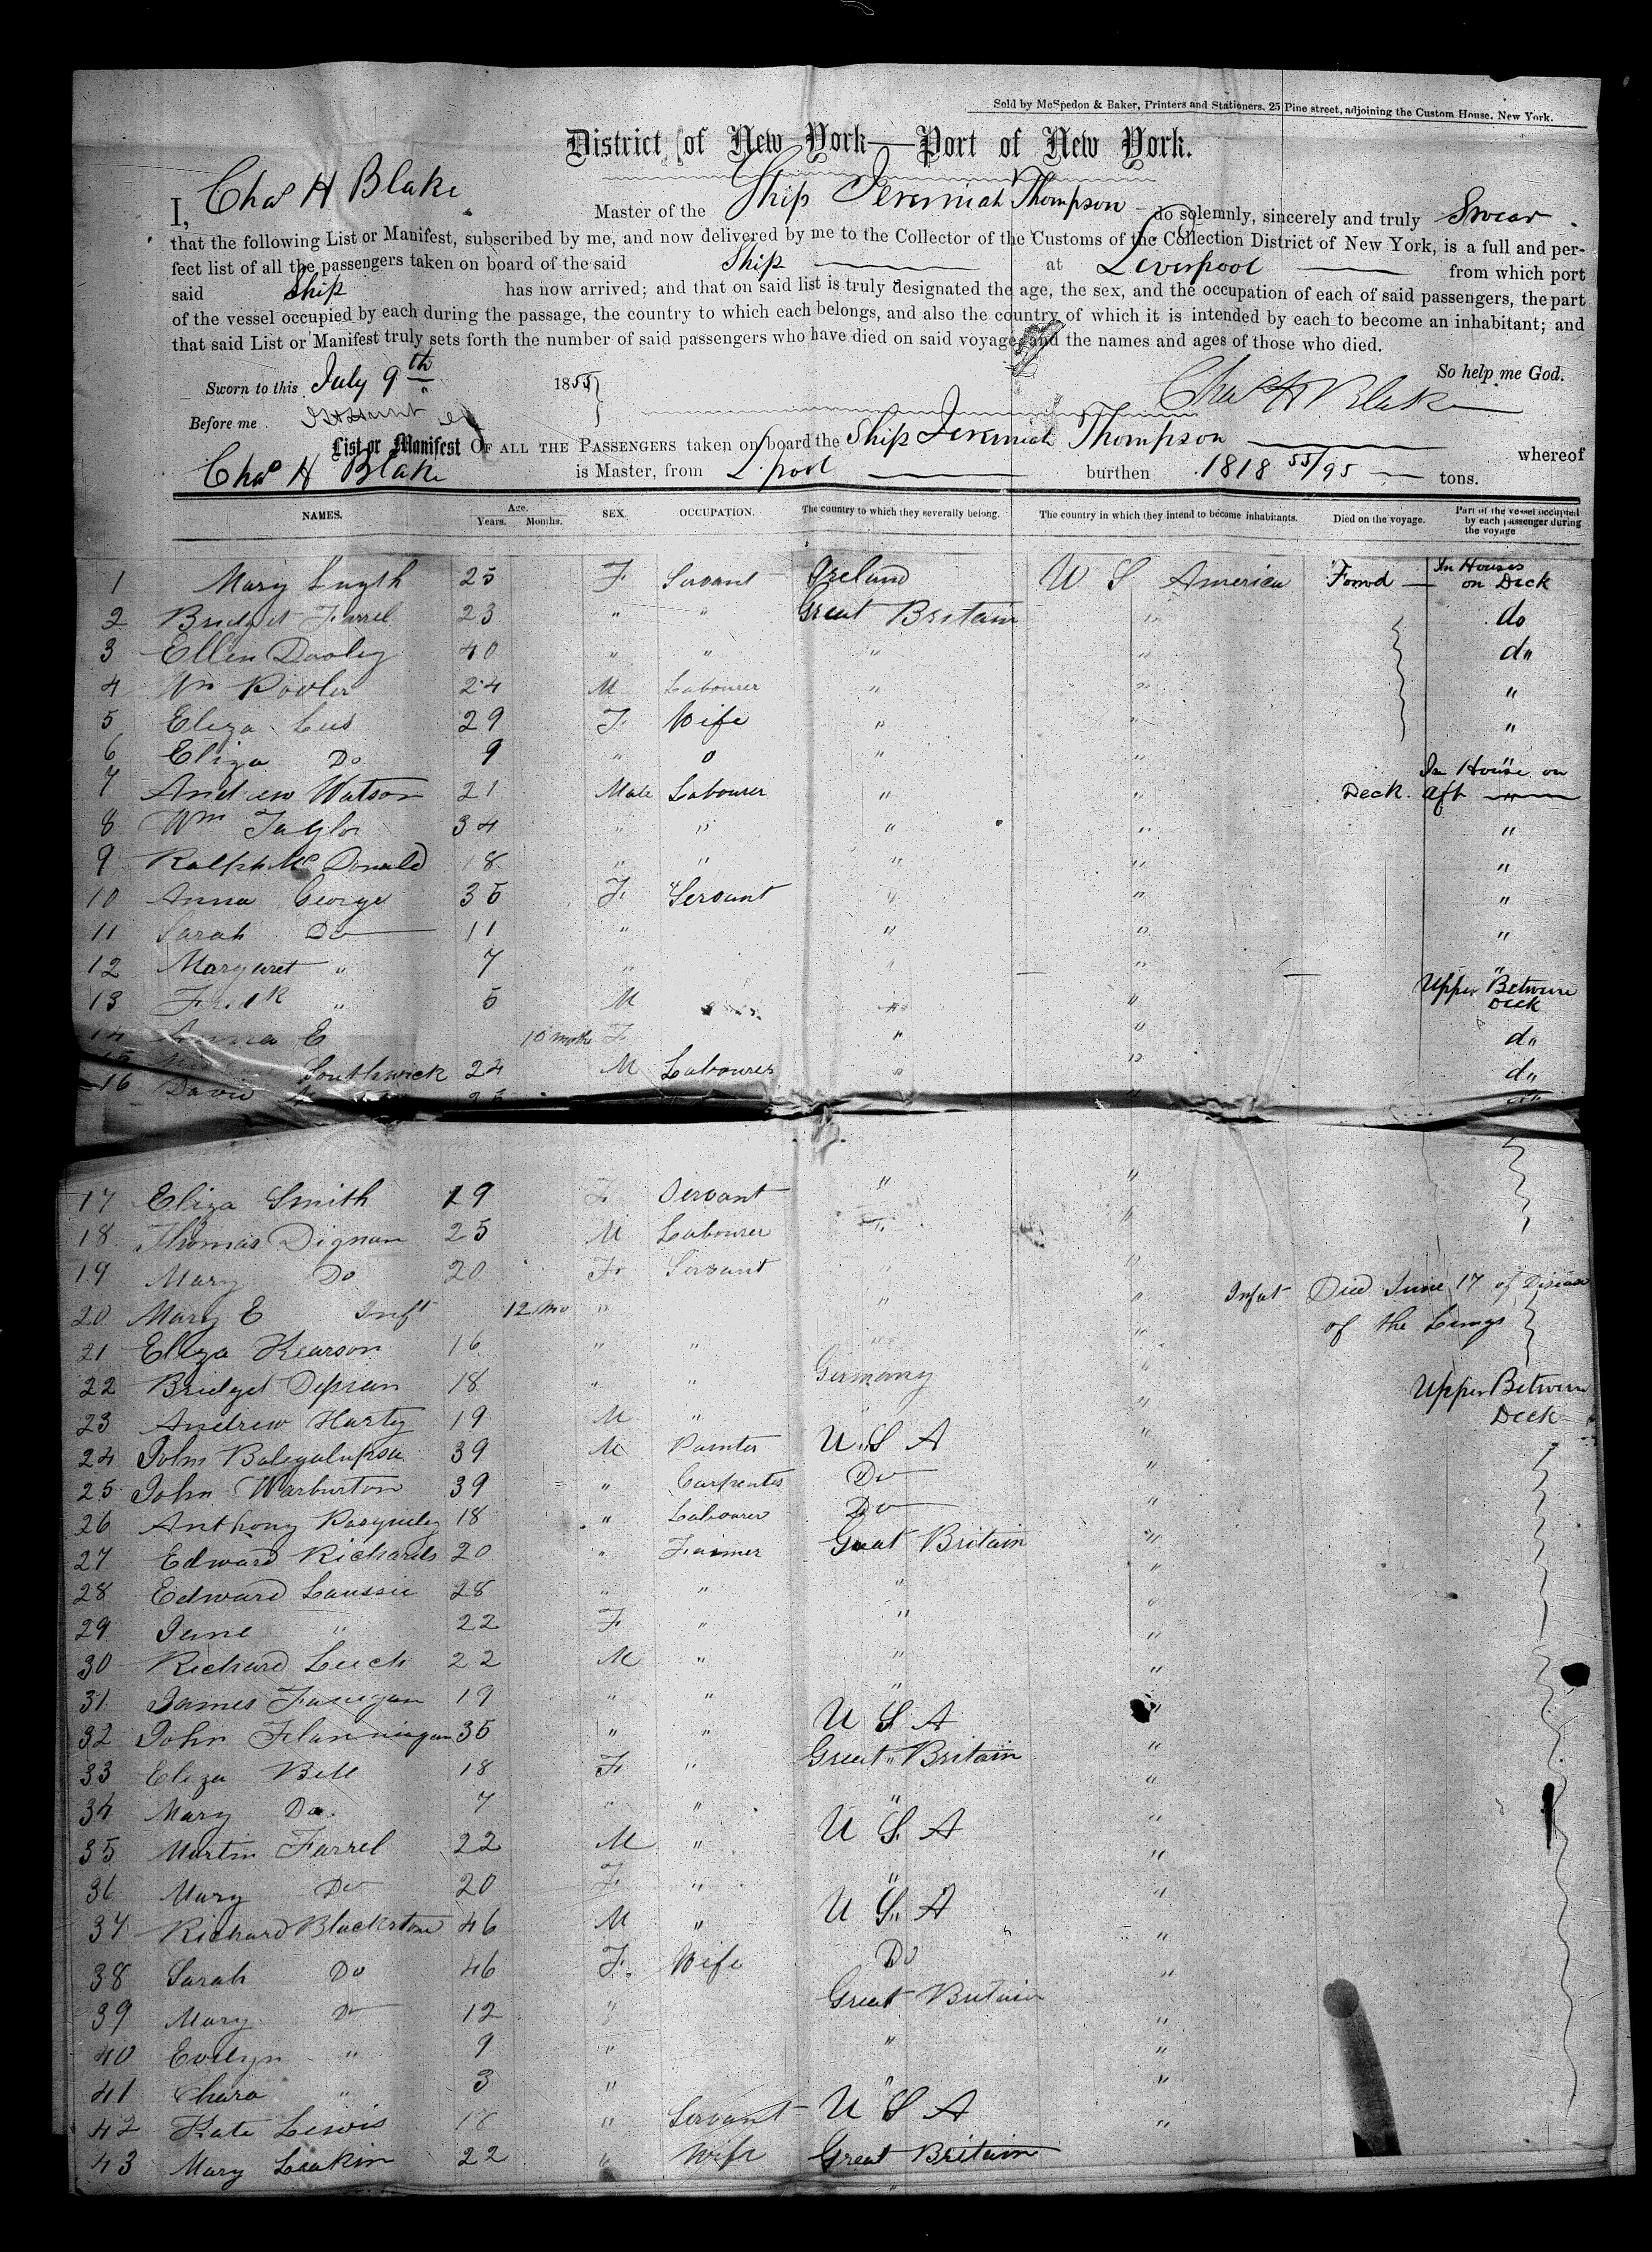 Sold by McSpedon & Baker, Printers and Stationers, 25 Pine street, adjoining the Custom House, New York.
District of New York—Port of New York.
I, Chas H Blake Master of the Ship Jeremiah Thompson do solemnly, sincerely and truly Swear
that the following List or Manifest, subscribed by me, and now delivered by me to the Collector of the Customs of the Collection District of New York, is a full and per-
fect list of all the passengers taken on board of the said Ship at Liverpool from which port
said Ship has now arrived; and that on said list is truly designated the age, the sex, and the occupation of each of said passengers, the part
of the vessel occupied by each during the passage, the country to which each belongs, and also the country of which it is intended by each to become an inhabitant; and
that said List or Manifest truly sets forth the number of said passengers who have died on said voyage, and the names and ages of those who died.
So help me God.
Sworn to this July 9th 1855
Chas H Blake
Before me
List or Manifest OF ALL THE PASSENGERS taken on board the Ship Jeremiah Thompson whereof
Chas H Blake is Master, from L.pool burthen 1818 55/95 tons.
NAMES. Age. Years. Months. SEX. OCCUPATION. The country to which they severally belong. The country in which they intend to become inhabitants. Died on the voyage. Part of the vessel occupied by each passenger during the voyage
1 Mary 25 F Servant Ireland U S America Forwd In Houses on Deck
2 Bridget Farrel 23 " " Great Britain " do
3 Ellen Dooley 40 " " " " do
4 Wm 24 M Labourer " " "
5 Eliza Lees 29 F Wife " " "
6 Eliza Do 9 " " " "
7 Andrew Watson 21 Male Labourer " " Deck. In House on Aft
8 Wm Taylor 34 " " " " "
9 Ralph Mc Donald 18 " " " " "
10 Anna George 35 F Servant " " "
11 Sarah Do 11 " " " "
12 Margaret " 7 " " " "
13 Fredk " 5 M " " Upper Between Deck
14 Anna E 10 mths F " " do
15 Southwick 24 M Labourer " " do
16 David
17 Eliza Smith 19 F Servant " "
18 Thomas Dignan 25 M Labourer " "
19 Mary Do 20 F Servant " "
20 Mary E Inft 12 Mo " " " Infat Died June 17 of Disease of the Lungs
21 Eliza Kearson 16 " " " "
22 Bridget 18 " " Germany " Upper Between Deck
23 Andrew Harty 19 M " " "
24 John 39 M Painter U S A "
25 John Warburton 39 " Carpenter Do "
26 Anthony 18 " Labourer Do "
27 Edward Richards 20 " Farmer Great Britain "
28 Edward Laussie 28 " " " "
29 Jane " 22 F " " "
30 Richard Leech 22 M " " "
31 James 19 " " " "
32 John Flanningan 35 " " U S A "
33 Eliza Bell 18 F " Great Britain "
34 Mary Do. 7 " " " "
35 Martin Farrel 22 M " U S A "
36 Mary Do 20 F " " "
37 Richard Blackstone 46 M " U S A "
38 Sarah Do 46 F. Wife Do "
39 Mary Do 12 " Great Britain "
40 Evelyn " 9 " " "
41 " 3 " " "
42 Kate Lewis 18 " Servant U S A "
43 Mary Leakin 22 " Wife Great Britain